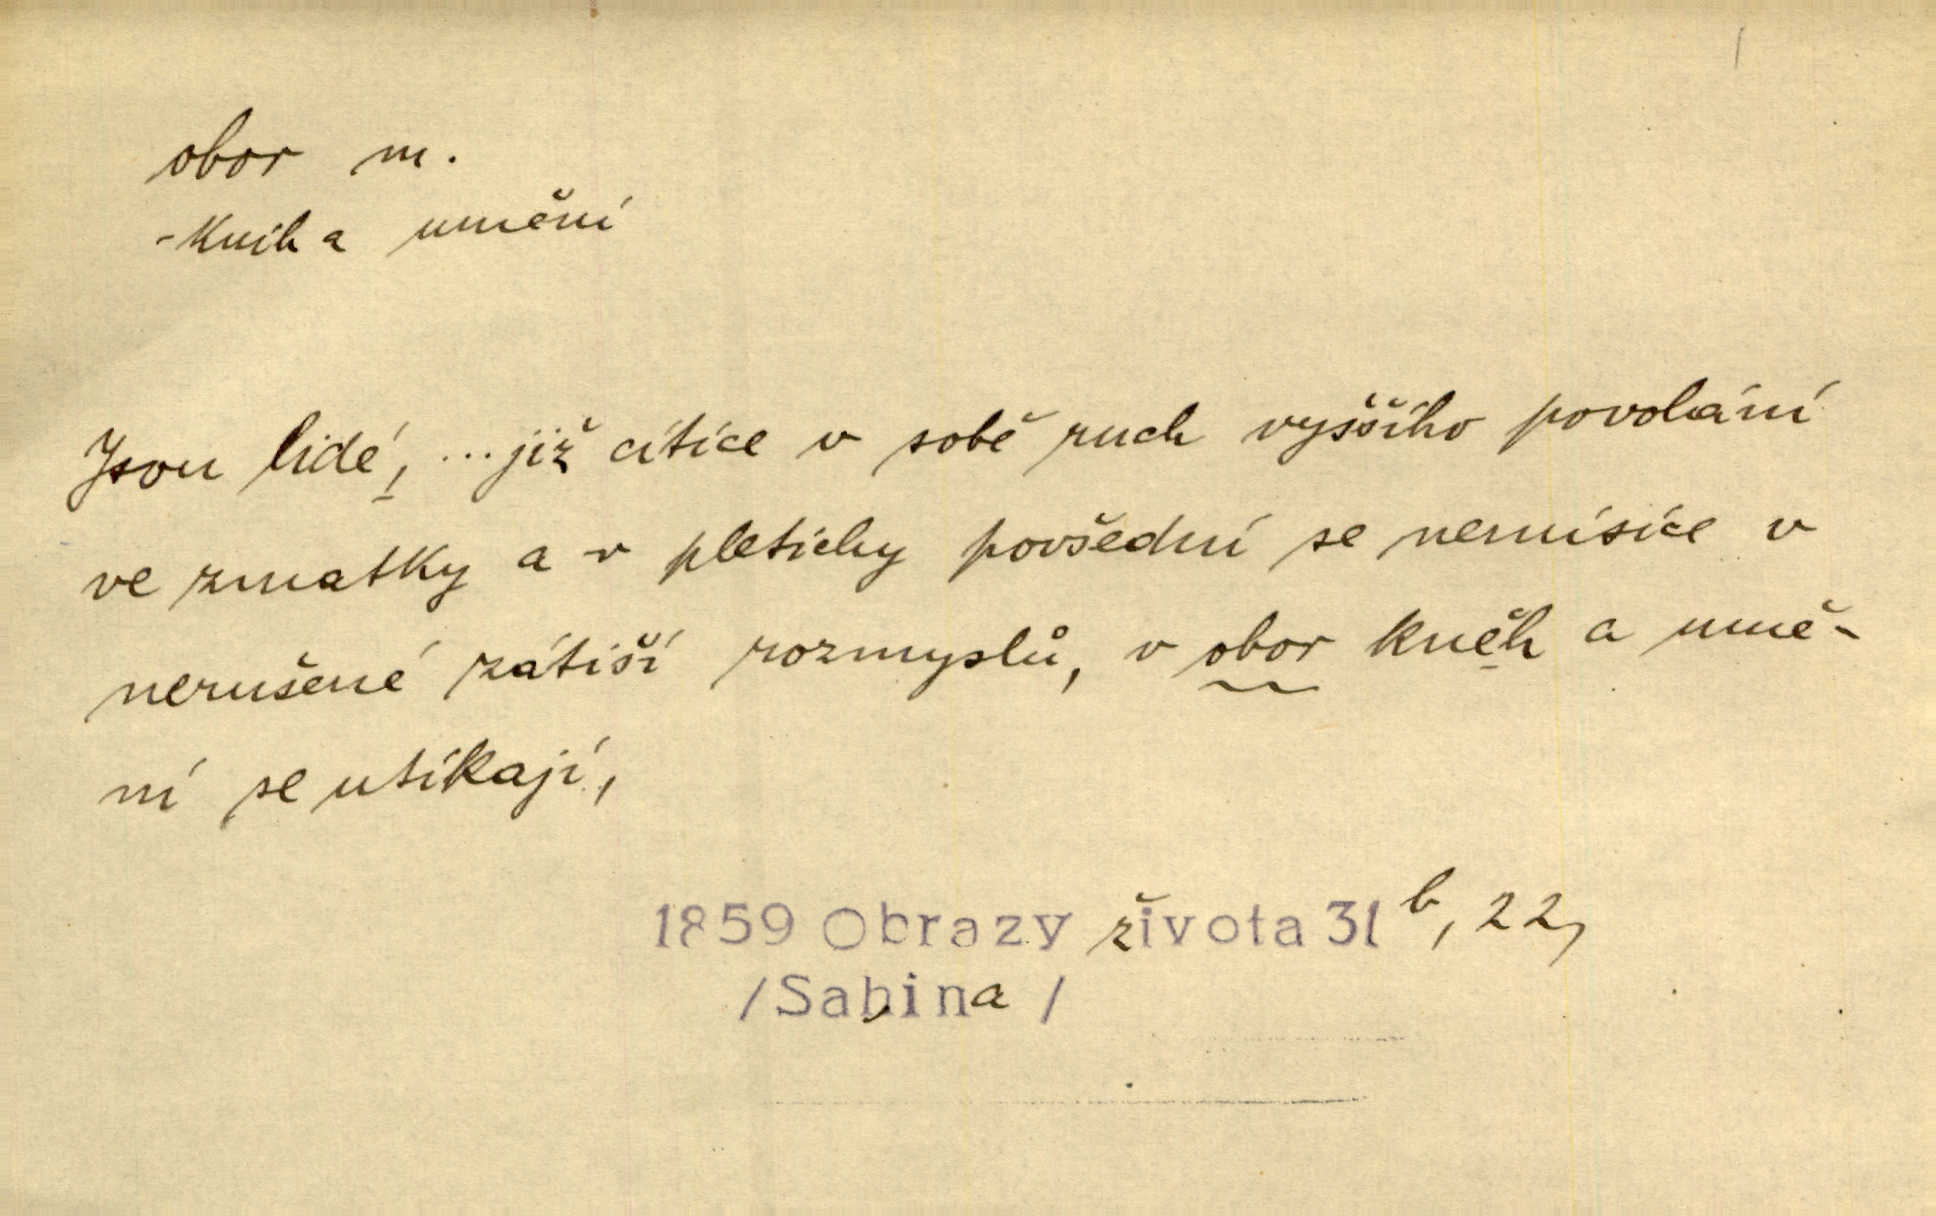 obor m.
-knih a umění
Jsou lidé, ...již cítíce v sobě ruch vyššího povolání
ve zmatky a v pletichy povšední se nemísíce v
nerušené zátiší rozmyslů, v obor kněh a umě-
ní se utíkají,
1859 Obrazy života 31 b, 22,
/Sabina /